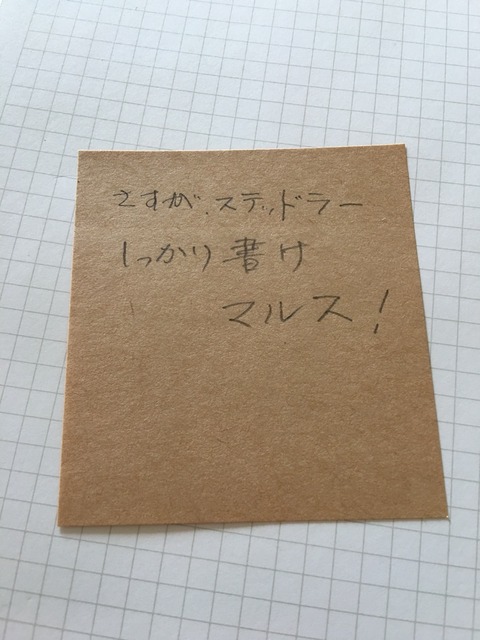 さすが、ステッドラー
しっかり書け
マルス!